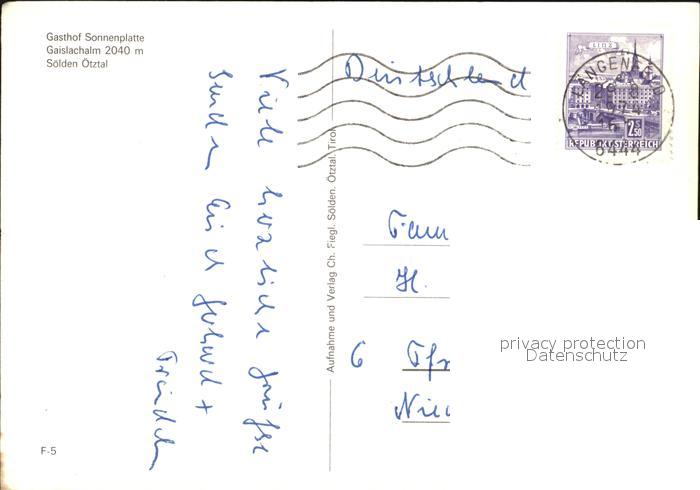 Gasthof Sonnenplatte
Gaislachalm 2040 m
Sölden Ötztal
Viele herzliche Grüße
senden Euch Gerhard +
F-5
Aufnahme und Verlag Ch. Fiegl, Sölden, Ötztal, Tirol
Deutschland
LINZ
LÄNGENFELD
6444
2.50
REPUBLIK ÖSTERREICH
Fam
H.
6 Ffr
privacy protection
Datenschutz